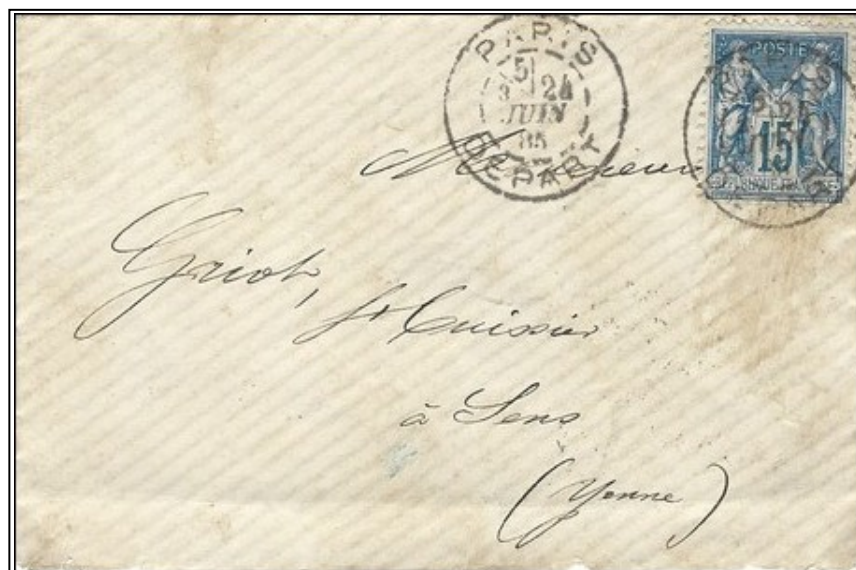 PARIS
5E
3 24
JUIN
85
DEPART
POSTE
15
REPUBLIQUE FRANCAISE
Monsieur
Griot,
à Sens
(Yonne)